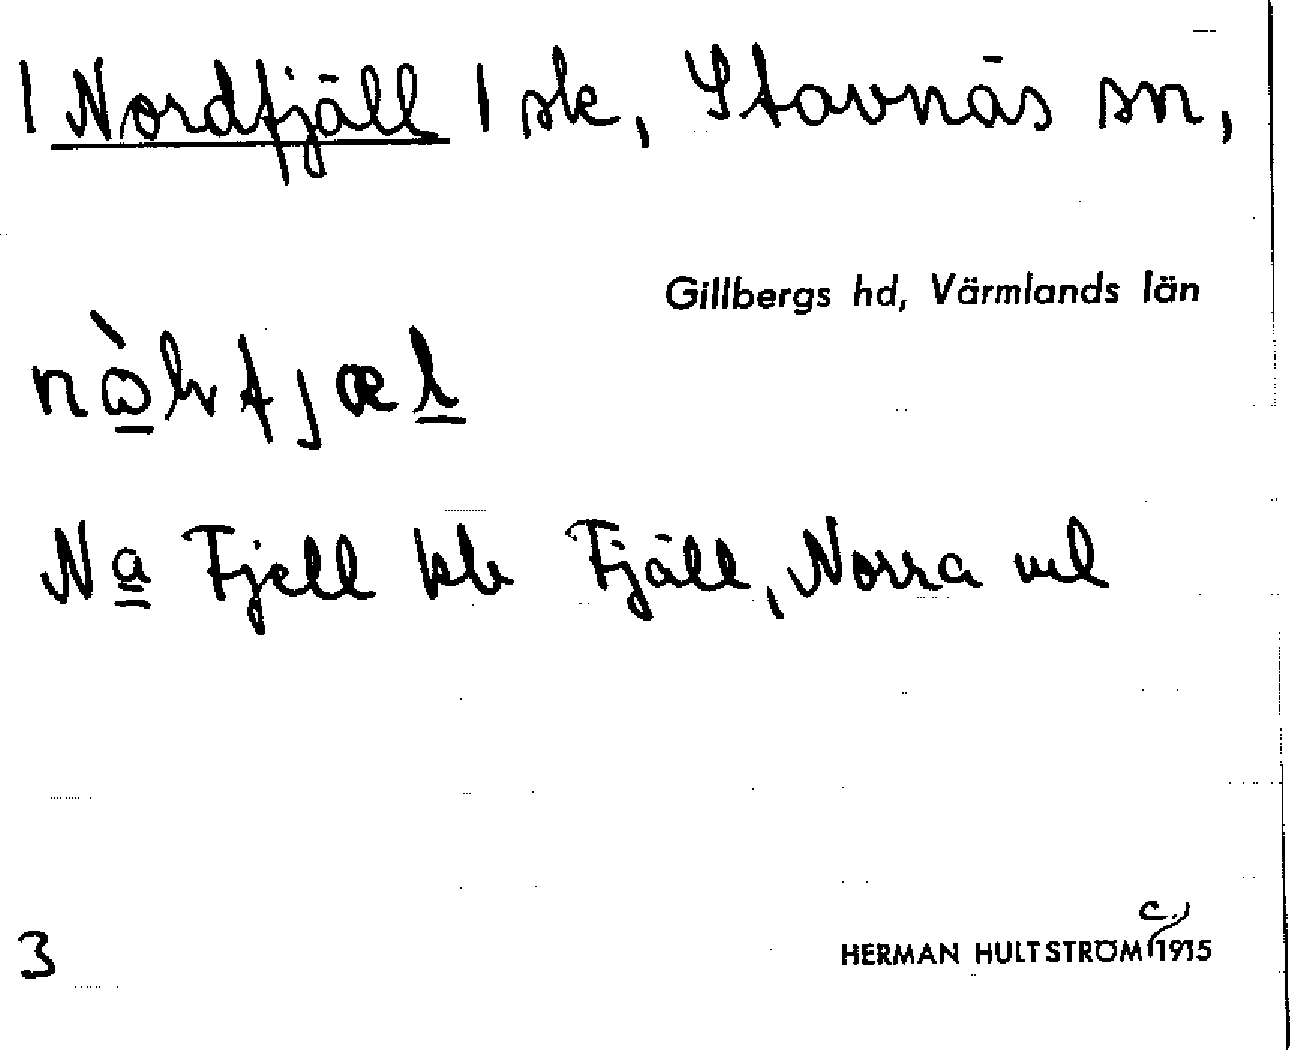 | Nordfjäll | sk, Stavnäs sn,
Gillbergs hd, Värmlands län
Na Fjell kb Fjäll, Norra vel
3
c.
HERMAN HULTSTRÖM 1915